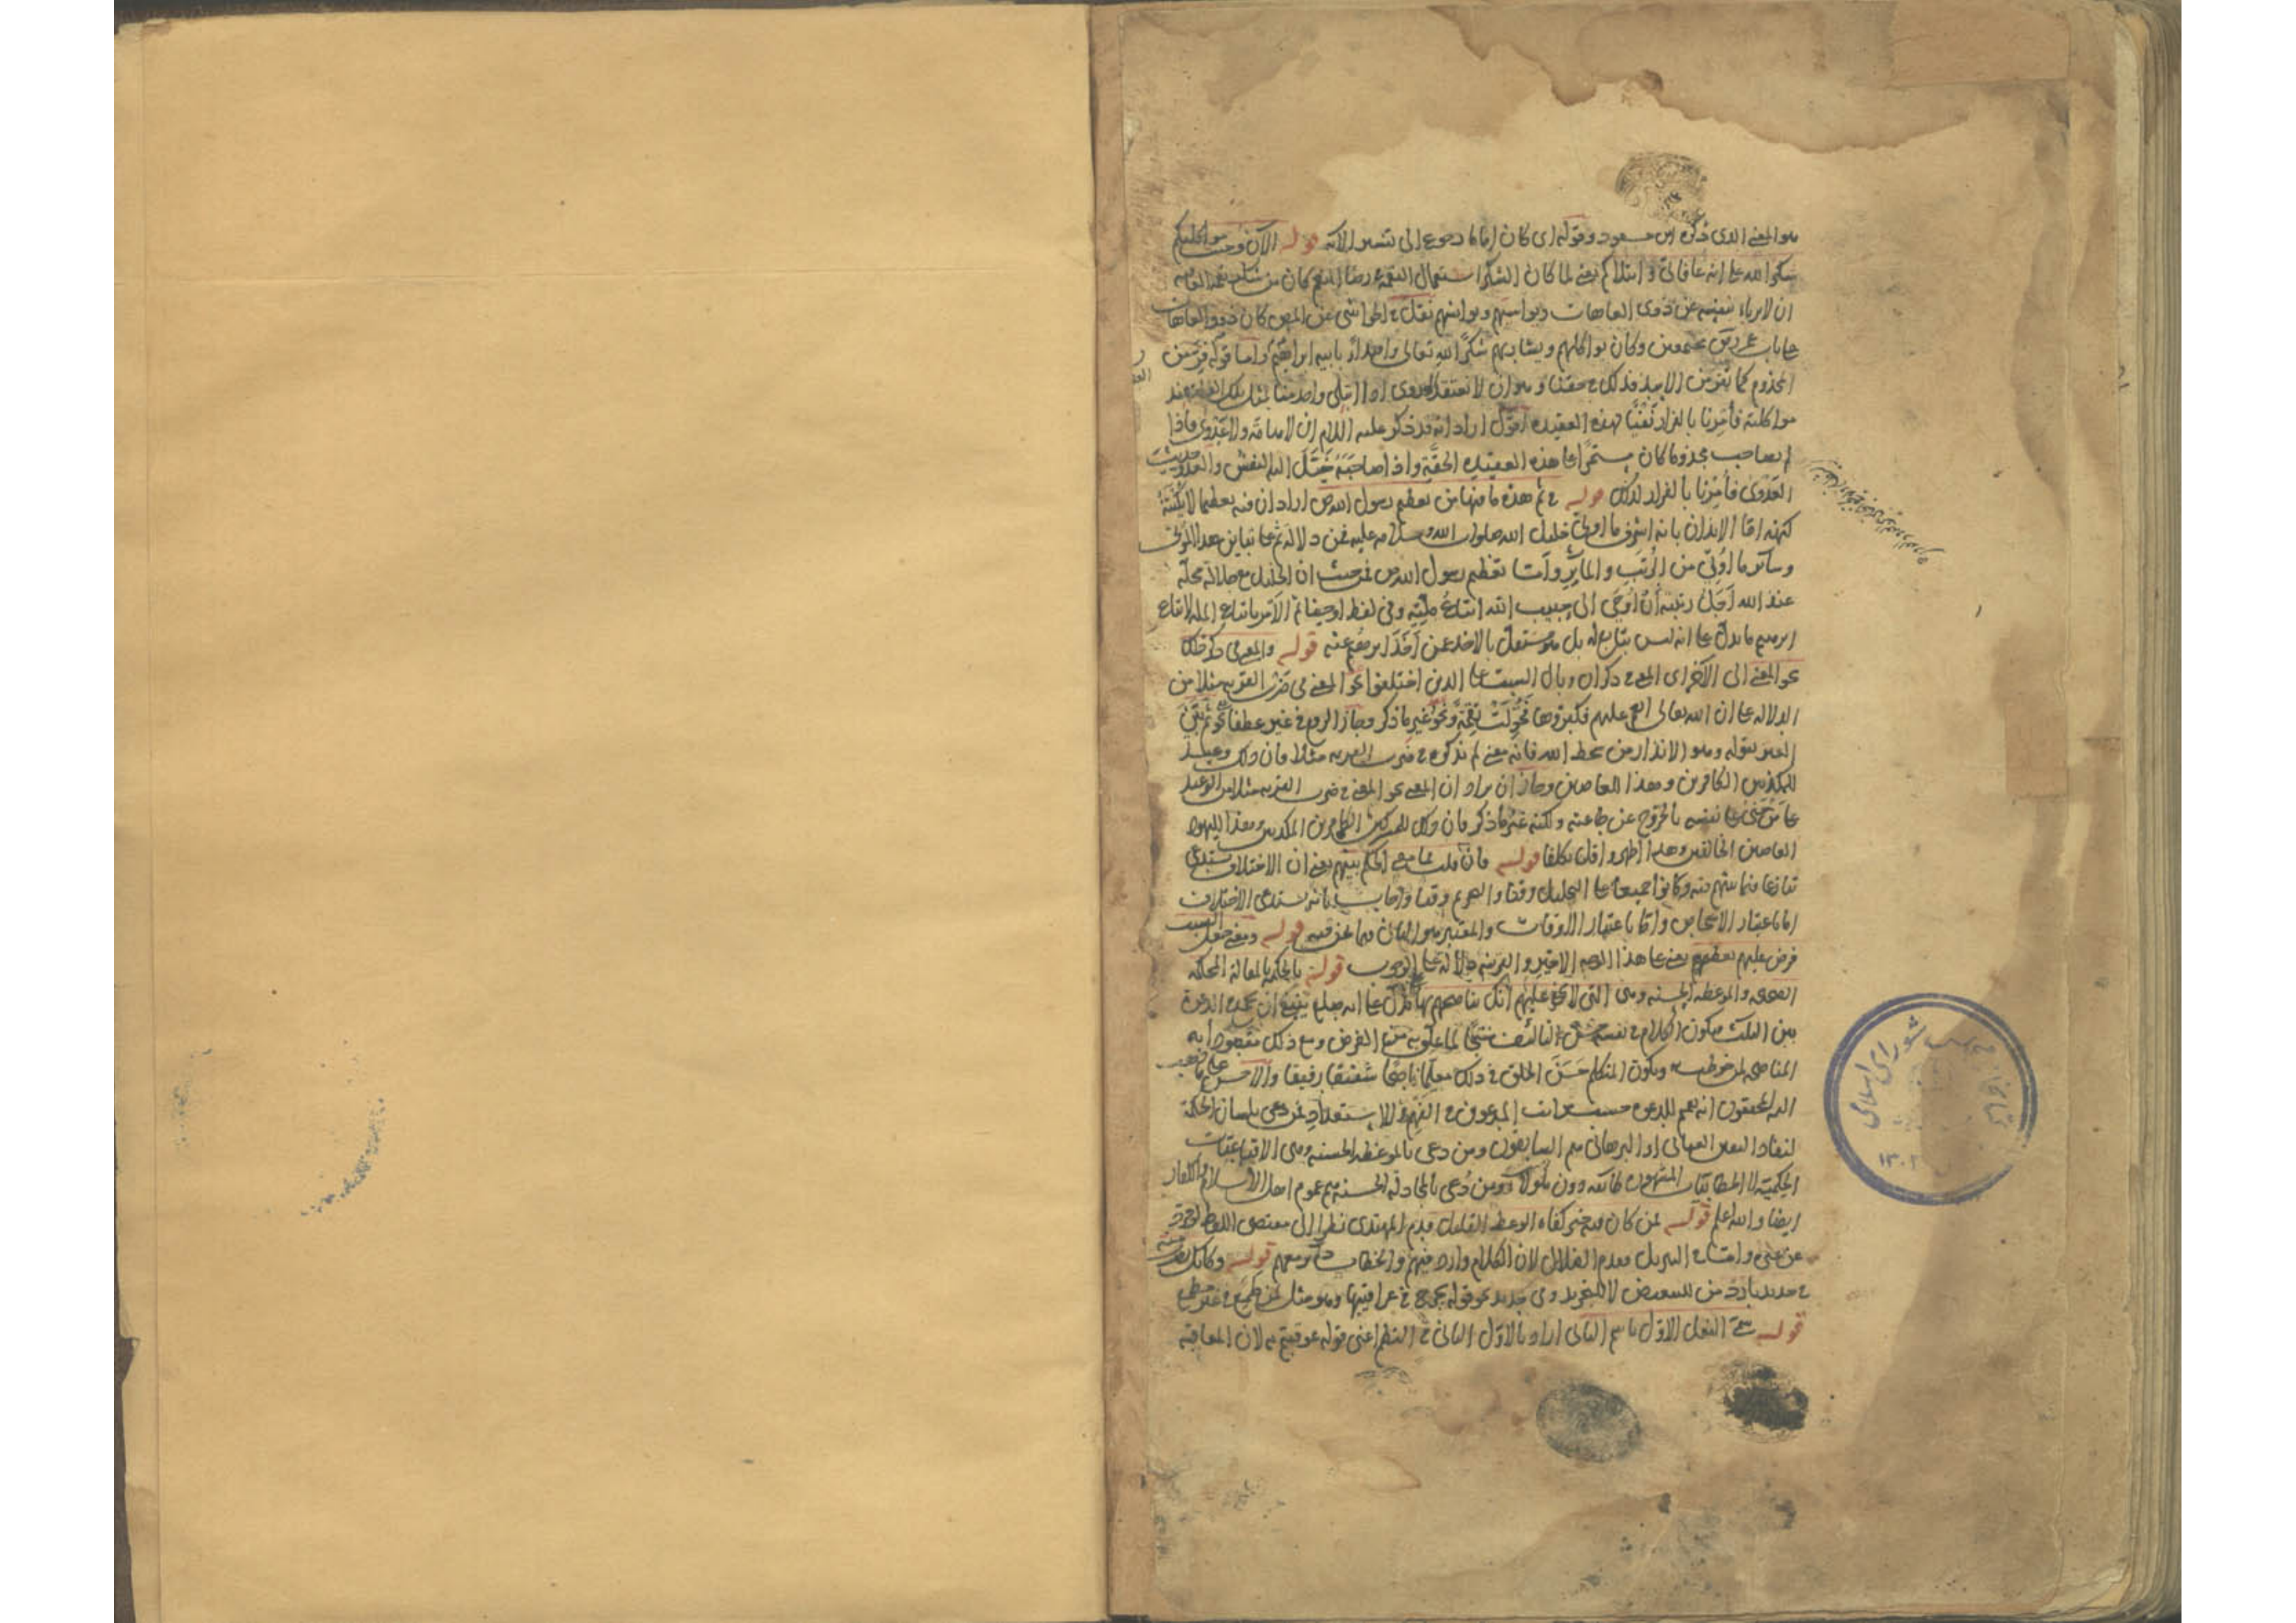 هو المعنى الذى ذكره ابن مسعود وقوله اى كان اماما رجوع الى تفسير الآية قوله الآن وجب مواكلتكم
شكرا لله على انه عافانى وابتلاكم يعنى لما كان الشكر استعمال النعمة فى رضا المنعم كان من شكر نعمة العافية
ان لا يرباء بنفسه عن ذوى العاهات ويواسيهم ويوانسهم نقل فى الحواشى عن المص كان ذوو العاهات
على باب يجتمعون وكان يواكلهم ويشاربهم شكرا لله تعالى واقتداء بابيه ابراهيم واما قوله فر من
المجذوم كما تفر من الاسد فذلك فى حقنا وهو ان لا نعتقد العدوى اذا ابتلى واحد منا بمثل تلك العلة عند
مواكلته فأمرنا بالفرار نفيا لهذه العقيدة اقول اراد انه قد ذكر عليه السلام ان لا هامة ولا عدوى فاذا
لم يصاحب مجذوما كان مستمرا على هذه العقيدة الحقة واذا صاحبه خيل اليه النفس
العدوى فأمرنا بالفرار لذلك قوله فى ثم هذه ما فيها من تعظيم رسول الله ص اراد ان فيه تعظيما لا يكتنه
كنهه اما الايذان بانه اشرف ما اوتى خليل الله صلوات الله وسلامه عليه فمن دلالة ثم على تباين هذا المؤتى
وسائر ما اوتى من الرتب والمآثر وأما تعظيم رسول الله ص فمن حيث ان الخليل مع جلالة محله
عند الله أجل رتبته أن أوحى الى حبيب الله اتباع ملته وفى لفظ اوحينا ثم الامر باتباع الملة لا اتباع
ابرهيم ما يدل على انه ليس بتابع له بل هو مستقل بالاخذ عمن أخذ ابرهيم عنه قوله والمعنى فى ذكر ذلك
نحو المعنى الى الآخر اى المعنى فى ذكر ان وبال السبت على الذين اختلفوا نحو المعنى فى ضرب القرية مثلا من
الدلالة على ان الله تعالى انعم عليهم فكفروها فحولت نقمة ونحو غير ما ذكر
الغير بقوله وهو الانذار من سخط الله فانه معنى لم يذكره فى ضرب القرية مثلا فان ذلك وعيد
للمكذبين الكافرين وهذا العاصين وجاز ان يراد ان المعنى نحو المعنى فى ضرب القرية مثلا من الوعيد
على من جنى على نفسه بالخروج عن طاعته ولكنه غير ما ذكر فان ذلك للمشركين الكافرين المكذبين وهذا لليهود
العاصين المخالفين وهذا اظهر واقل تكلفا قوله فان قلت ما معنى الحكم بينهم يعنى ان الاختلاف يستدعى
تنازعا فيما بينهم فيه وكانوا جميعا على التحليل وقتا والتحريم وقتا واجاب بانه يستدعى الاختلاف
اما باعتبار الاشخاص واما باعتبار الاوقات والمعتبر هو الثانى فيما نحن فيه قوله ومعنى جعل السبت
فرض عليهم تعظيمه يعنى على هذا الوجه الاخير والقرينة دلالة على الوجوب قوله بالحكمة بالمقالة المحكمة
الصحيحة والموعظة الحسنة وهى التى لا يخفى عليهم انك تناصحهم بها
بين الثلث فيكون الكلام فى نفسه حسن التأليف منتجا لما علق به من الغرض ومع ذلك مقصودا به
المناصحة لمن خوطب به ويكون المتكلم حسن الخلق فى ذلك معلما ناصحا شفيقا رفيقا والاحسن على ما ذهب
اليه المحققون انه تعميم للدعوة حسب مراتب المدعوين فى الفهم والاستعداد فمن دعى بلسان الحكمة
ليفاد اليقين العيانى او البرهانى هم السابقون ومن دعى بالموعظة الحسنة وهى الاقناعيات
الحكمية لا الخطابيات المشهورة طائفة دون هؤلاء ومن دعى بالمجادلة الحسنة هم عموم اهل الاسلام والكفار
ايضا والله اعلم قوله فمن كان فيه خير كفاه الوعظ القليل قدم المهتدى نظرا الى مقتضى اللفظ
وفى التنزيل قدم الضلال لان الكلام وارد فيهم والخطاب دائر معهم قوله وكانك
من للتبعيض لا للتجريد
قوله سمى الفعل الاول باسم الثانى اراد بالاول الثانى فى النظم اعنى قوله عوقبتم به لان المعاقبة
شوراى اسلامى
١٣٠٢